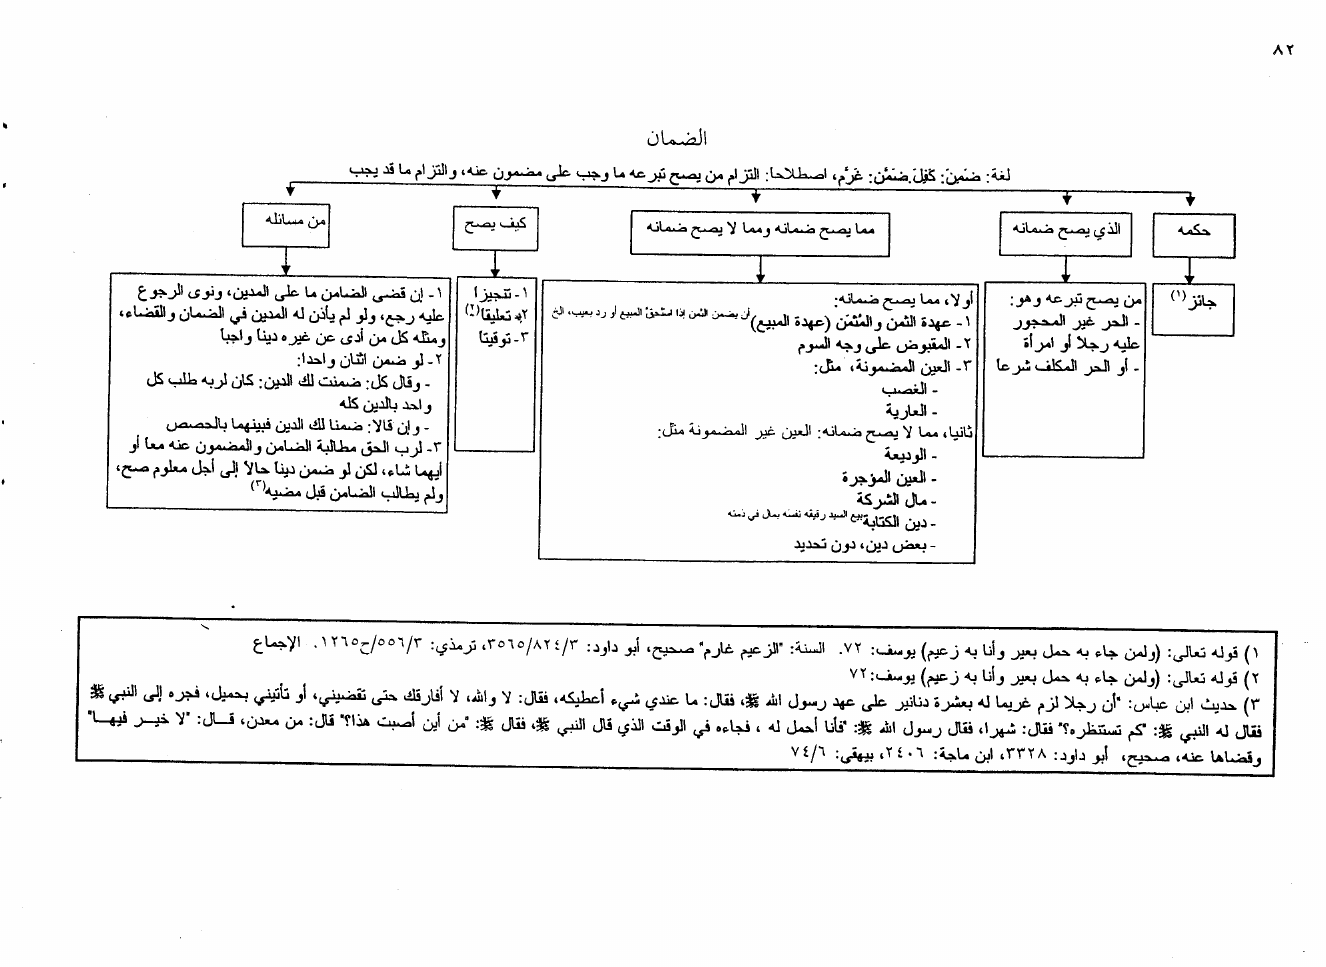 ٨٢
الضمان
لغة: ضَمِنَ: كَفِلَ. ضَمَّنَ: غرَّم، اصطلاحا: التزام من يصح تبرعه ما وجب على مضمون عنه، والتزام ما قد يجب
حكمه
جائز (١)
الذي يصح ضمانه
من يصح تبرعه وهو:
- الحر غير المحجور
عليه رجلا أو امرأة
- أو الحر المكلف شرعا
مما يصح ضمانه ومما لا يصح ضمانه
أولا، مما يصح ضمانه:
١- عهدة الثمن والمُثمَّن (عهدة المبيع) أن يضمن الثمن إذا استحق المبيع أو رد بعيب، الخ
٢- المقبوض على وجه السوم
٣- العين المضمونة، مثل:
- الغصب
- العارية
ثانيا، مما لا يصح ضمانه: العين غير المضمونة مثل:
- الوديعة
- العين المؤجرة
- مال الشركة
- دين الكتابة بيع السيد رقيقه نفسه بمال في ذمته
- بعض دين، دون تحديد
كيف يصح
١- تنجيزا
٢- تعليقا(٢)
٣- توقيتا
من مسائله
١- إن قضى الضامن ما على المدين، ونوى الرجوع
عليه رجع، ولو لم يأذن له المدين في الضمان والقضاء،
ومثله كل من أدى عن غيره دينا واجبا
٢- لو ضمن اثنان واحدا:
- وقال كل: ضمنت لك الدين: كان لربه طلب كل
واحد بالدين كله
- وإن قالا: ضمنا لك الدين فبينهما بالحصص
٣- لرب الحق مطالبة الضامن والمضمون عنه معا أو
أيهما شاء، لكن لو ضمن دينا حالا إلى أجل معلوم صح،
ولم يطالب الضامن قبل مضيه(٣)
١) قوله تعالى: (ولمن جاء به حمل بعير وأنا به زعيم) يوسف: ٧٢. السنة: "الزعيم غارم" صحيح، أبو داود: ٣٥٦٥/٨٢٤/٣، ترمذي: ٥٥٦/٣/ح١٢٦٥. الإجماع
٢) قوله تعالى: (ولمن جاء به حمل بعير وأنا به زعيم) يوسف: ٧٢
٣) حديث ابن عباس: "أن رجلا لزم غريما له بعشرة دنانير على عهد رسول الله ﷺ، فقال: ما عندي شيء أعطيكه، فقال: لا والله، لا أفارقك حتى تقضيني، أو تأتيني بحميل، فجره إلى النبي ﷺ
فقال له النبي ﷺ: "كم تستنظره؟" فقال: شهرا، فقال رسول الله ﷺ: "فأنا أحمل له ، فجاءه في الوقت الذي قال النبي ﷺ، فقال ﷺ: "من أين أصبت هذا؟" قال: من معدن، قال: "لا خير فيها"
وقضاها عنه، صحيح، أبو داود: ٣٣٢٨، ابن ماجة: ٢٤٠٦، بيهقي: ٧٤/٦